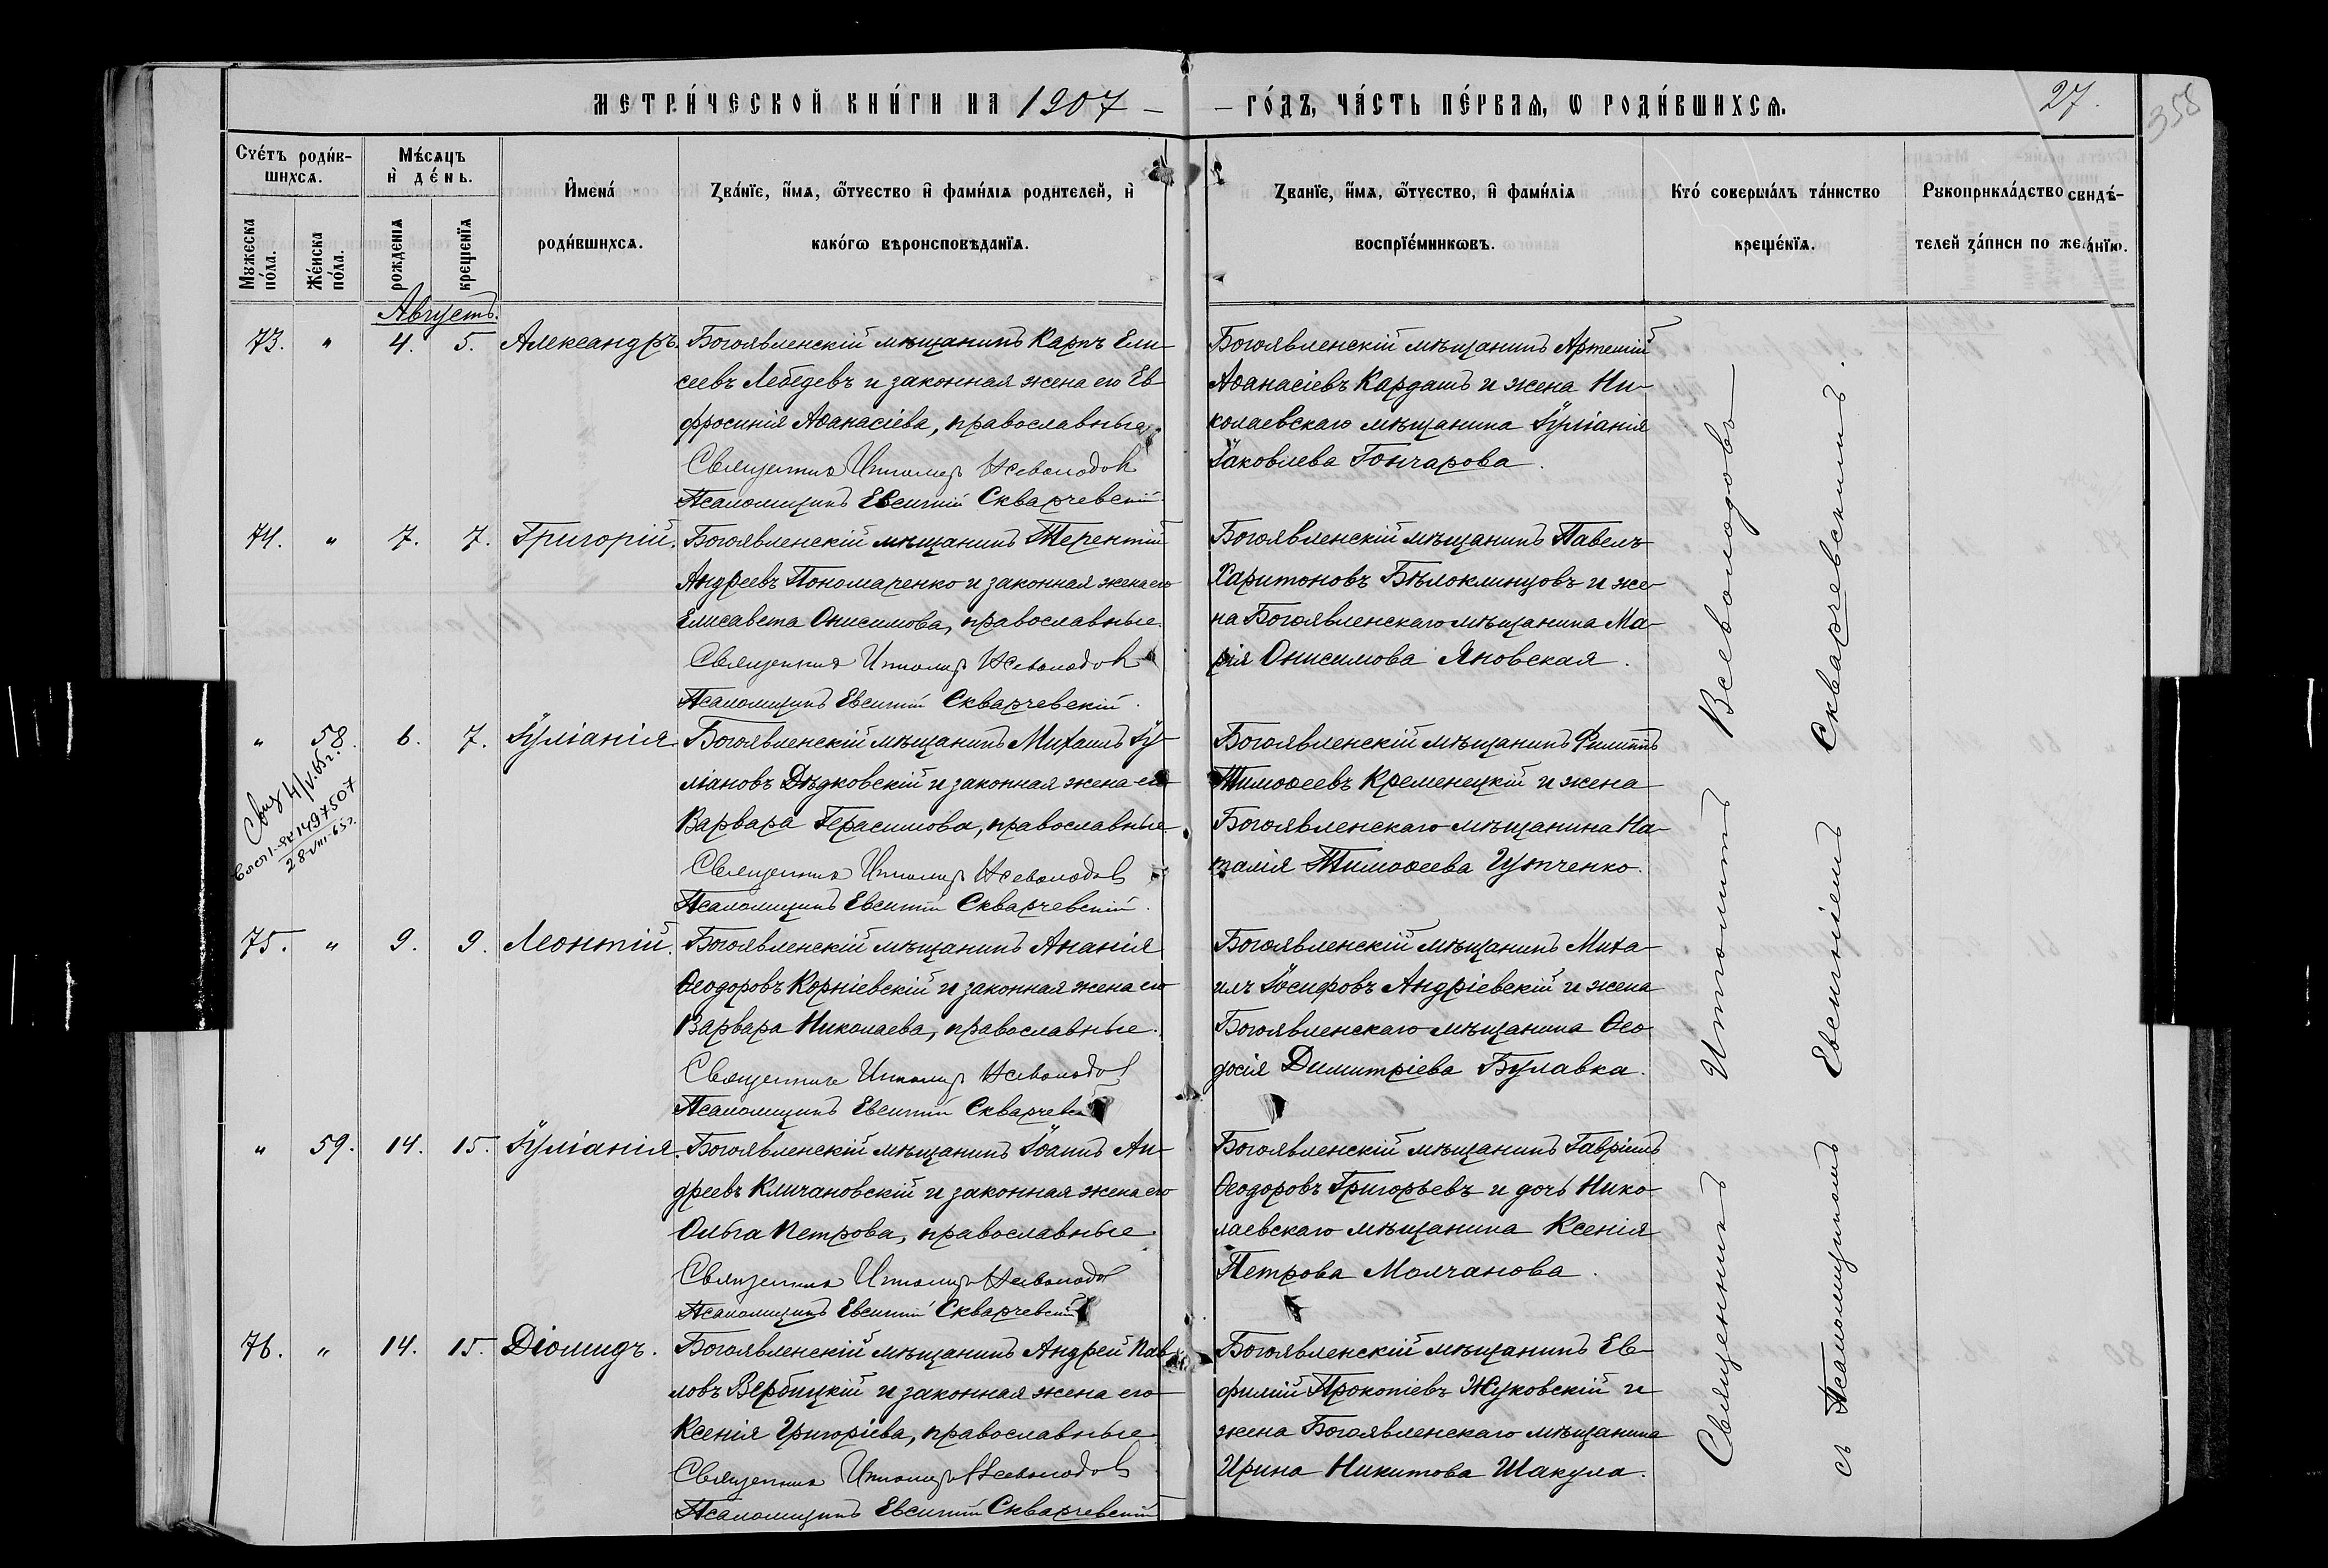 МЕТРИ́ЧЕСКОЙ КНИ́ГИ НА 1907 — — ГО́ДЪ, ЧА́СТЬ ПЕ́РВАѦ, Ѡ РОДИ́ВШИХСѦ. 27.
358
Счéтъ роди́вшихсѧ.
Му́жеска по́ла.
Же́нска по́ла.
Мѣ́сѧцъ и҆ де́нь.
рожденїѧ
крещенїѧ
И҆мена́ роди́вшихсѧ.
Зва́нїе, и҆́мѧ, ѻ҆́тчество и҆ фами́лїѧ родителей, и҆ како́гѡ вѣроисповѣданїѧ.
Званїе, и҆́мѧ, ѻ҆́тчество, и҆ фами́лїѧ воспрїе́мникѡвъ.
Кто́ соверша́лъ та́инство креще́нїѧ.
Рукоприкла́дство свидѣ́телей за́писи по жела́нїю.
Августъ.
73. " 4. 5. Александръ.
Богоявленскій мѣщанинъ Карпъ Ели-
сеевъ Лебедевъ и законная жена его Ев-
фросинія Аѳанасіева, православные.
Священникъ Ипполитъ Всеволодовъ
Псаломщикъ Евсигній Скварчевскій.
Богоявленскій мѣщанинъ Артемій
Аѳанасіевъ Кардашъ и жена Ни-
колаевскаго мѣщанина Іуліанія
Іаковлева Гончарова.
74. " 7. 7. Григорій.
Богоявленскій мѣщанинъ Терентій
Андреевъ Пономаренко и законная жена его
Елисавета Онисимова, православные.
Священникъ Ипполитъ Всеволодовъ
Псаломщикъ Евсигній Скварчевскій.
Богоявленскій мѣщанинъ Павелъ
Харитоновъ Бѣлоклинцовъ и же-
на Богоявленскаго мѣщанина Ма-
рія Онисимова Яновская.
" 58. 6. 7. Іуліанія.
4/V.65г.
1497507
28-VIII-65г.
Богоявленскій мѣщанинъ Михаилъ Іу-
ліановъ Дѣдковскій и законная жена его
Варвара Герасимова, православные
Священникъ Ипполитъ Всеволодовъ
Псаломщикъ Евсигній Скварчевскій.
Богоявленскій мѣщанинъ Филиппъ
Тимоѳеевъ Кременецкій и жена
Богоявленскаго мѣщанина На-
талія Тимоѳеева
75. " 9. 9. Леонтій.
Богоявленскій мѣщанинъ Ананія
Ѳеодоровъ Корніевскій и законная жена его
Варвара Николаева, православные.
Священникъ Ипполитъ Всеволодовъ
Псаломщикъ Евсигній Скварчевскій
Богоявленскій мѣщанинъ Миха-
илъ Іосифовъ Андріевскій и жена
Богоявленскаго мѣщанина Ѳео-
досія Димитріева Булавка.
" 59. 14. 15. Іуліанія.
Богоявленскій мѣщанинъ Іоаннъ Ан-
дреевъ Кличановскій и законная жена его
Ольга Петрова, православные.
Священникъ Ипполитъ Всеволодовъ
Псаломщикъ Евсигній Скварчевскій
Богоявленскій мѣщанинъ Гавріилъ
Ѳеодоровъ Григорьевъ и дочь Нико-
лаевскаго мѣщанина Ксенія
Петрова Молчанова.
76. " 14. 15. Діомидъ.
Богоявленскій мѣщанинъ Андрей Пав-
ловъ Вербицкій и законная жена его
Ксенія Григоріева, православные
Священникъ Ипполитъ Всеволодовъ
Псаломщикъ Евсигній Скварчевскій
Богоявленскій мѣщанинъ Ев-
фимій Прокопіевъ Жуковскій и
жена Богоявленскаго мѣщанина
Ирина Никитова Шакула.
Священникъ Ипполитъ Всеволодовъ
съ Псаломщикомъ Евсигніемъ Скварчевскимъ.